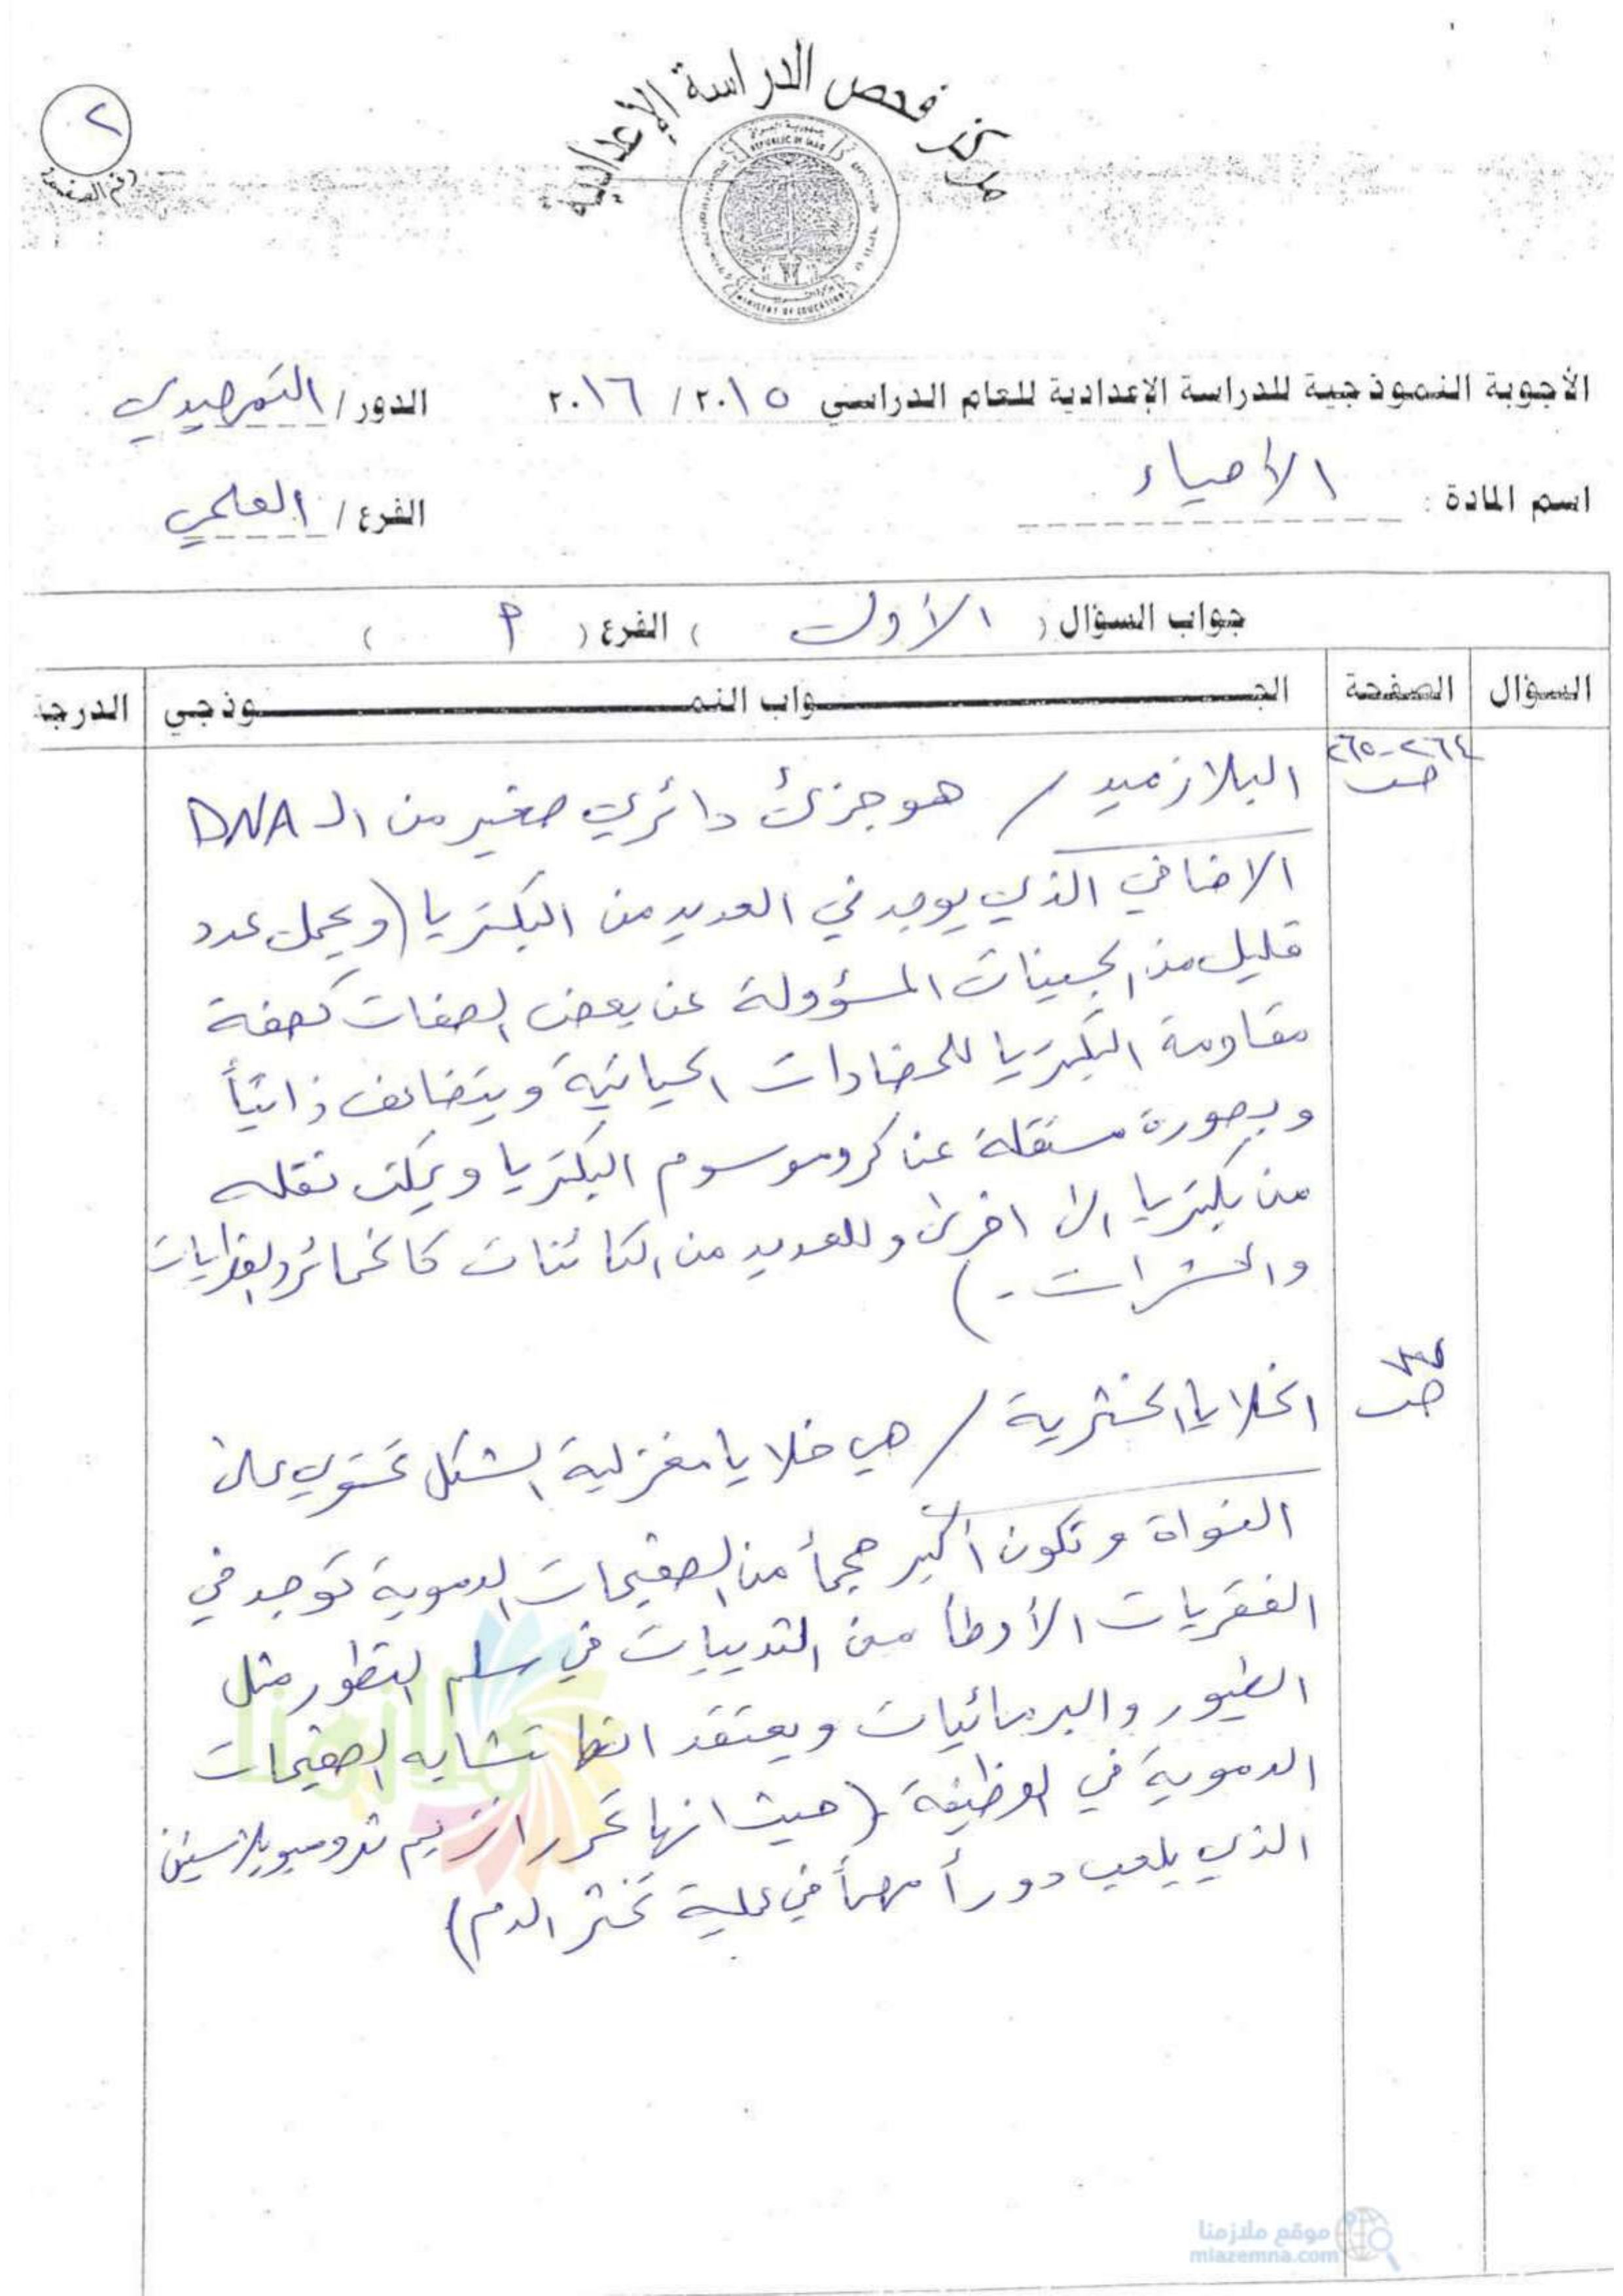 مركز فحص الدراسة الإعدادية
٢
رقم الصفحة
REPUBLIC OF IRAQ
MINISTRY OF EDUCATION
الأجوبة النموذجية للدراسة الإعدادية للعام الدراسي ٢٠١٥ / ٢٠١٦ الدور / التمهيدي
اسم المادة : الأحياء الفرع / العلمي
جواب السؤال ( الأول ) الفرع ( أ )
السؤال الصفحة الجـــواب النمـــوذجي الدرجة
ص ٢٦٤-٢٦٥
البلازميد / هو جزئ دائري صغير من الـ DNA
الاضافي الذي يوجد في العديد من البكتريا (ويحمل عدد
قليل من الجينات المسؤولة عن بعض الصفات كصفة
مقاومة البكتريا للمضادات الحياتية ويتضاعف ذاتياً
وبصورة مستقلة عن كروموسوم البكتريا ويمكن نقله
من بكتريا الى اخرى وللعديد من الكائنات كالخمائر والفطريات
والحشرات .)
ص
الخلايا الخثرية / هي خلايا مغزلية الشكل تحتوي على
النواة وتكون أكبر حجماً من الصفيحات الدموية توجد في
الفقريات الأوطأ من الثدييات في سلم التطور مثل
الطيور والبرمائيات ويعتقد انها تشابه الصفيحات
الدموية في الوظيفة (حيث انها تحرر انزيم ثرومبوبلاستين
الذي يلعب دوراً مهماً في عملية تخثر الدم)
ملازمنا
موقع ملازمنا
mlazemna.com